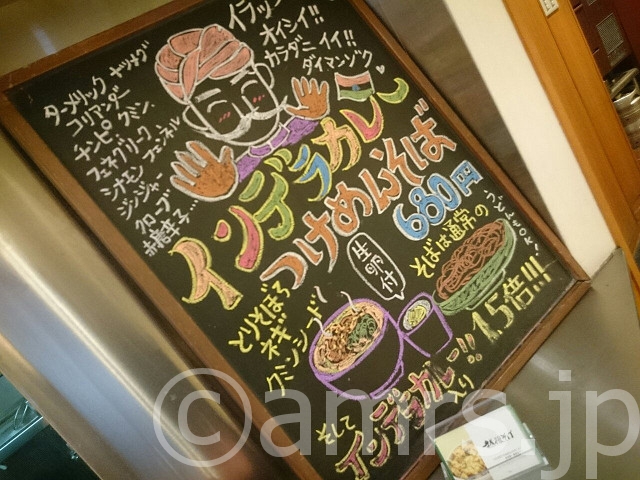 イラッ
オイシイ!!
カラダニ イイ!!
ダイマンゾク
ターメリック ナツメグ
コリアンダー
チンピ クミン
フェネグリーク フェンネル
シナモン
ジンジャー
クローブ
赤唐辛子…
インデラカレー
つけめんそば
680円
生卵付
そばは通常の
1.5倍!!!
とりそぼろ
ネギ
クミンシード
そして
インデラカレー!!
入り
©amrs.jp